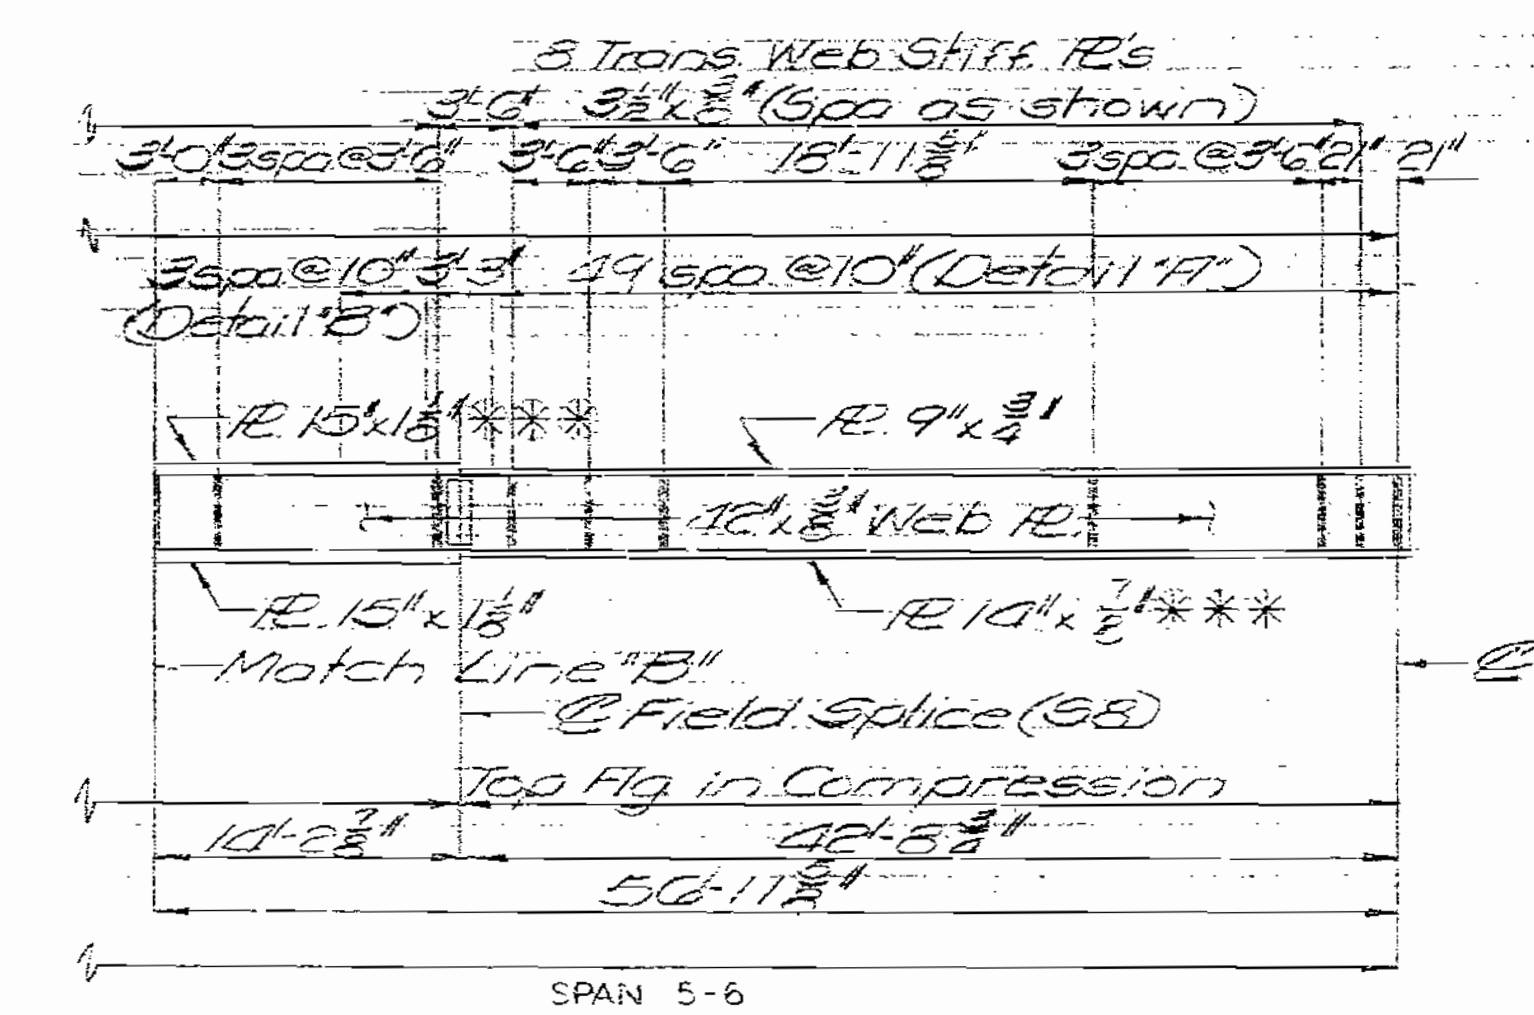 8 Trans. Web Stiff. PL's
3'-6" 3½"x⅜" (Spa as shown)
3'-0" 3spa.@3'-6" 3'-6" 3'-6" 18'-11⅝" 3spa.@3'-6" 21" 21"
3spa@10" 3'-3" 49 spa.@10" (Detail "A")
(Detail "B")
PL 15"x1⅛" *** PL 9"x ¾"
42"x⅜" Web PL
PL 15"x 1⅛" PL 14"x ⅞" ***
Match Line "B"
℄
℄ Field Splice (S8)
Top Flg in Compression
14'-2⅞" 42'-8¾"
56'-11⅝"
SPAN 5-6